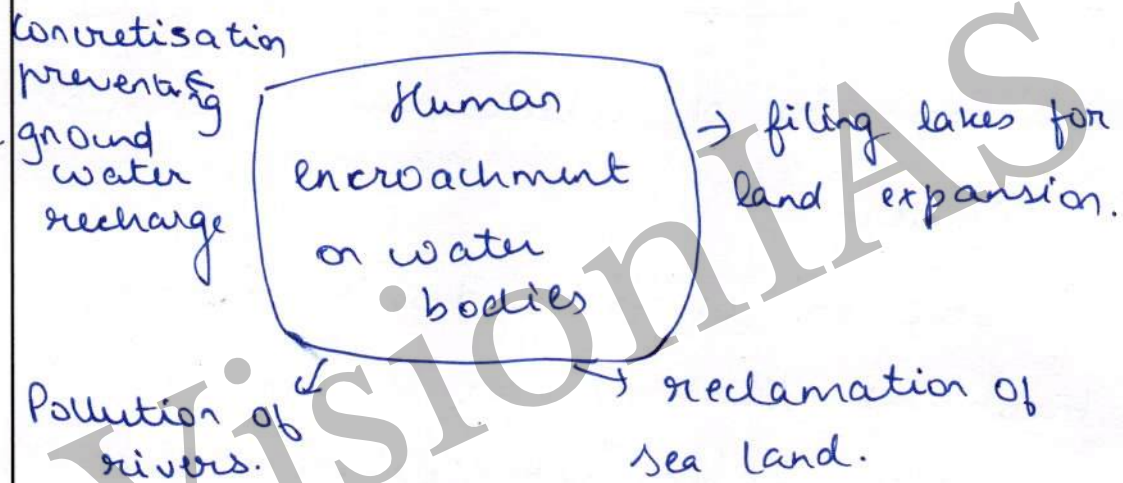 Concretisation
preventing
ground
water
recharge
Human
encroachment
on water
bodies
→ filing lakes for
land expansion.
Pollution of
rivers.
reclamation of
sea land.
VisionIAS